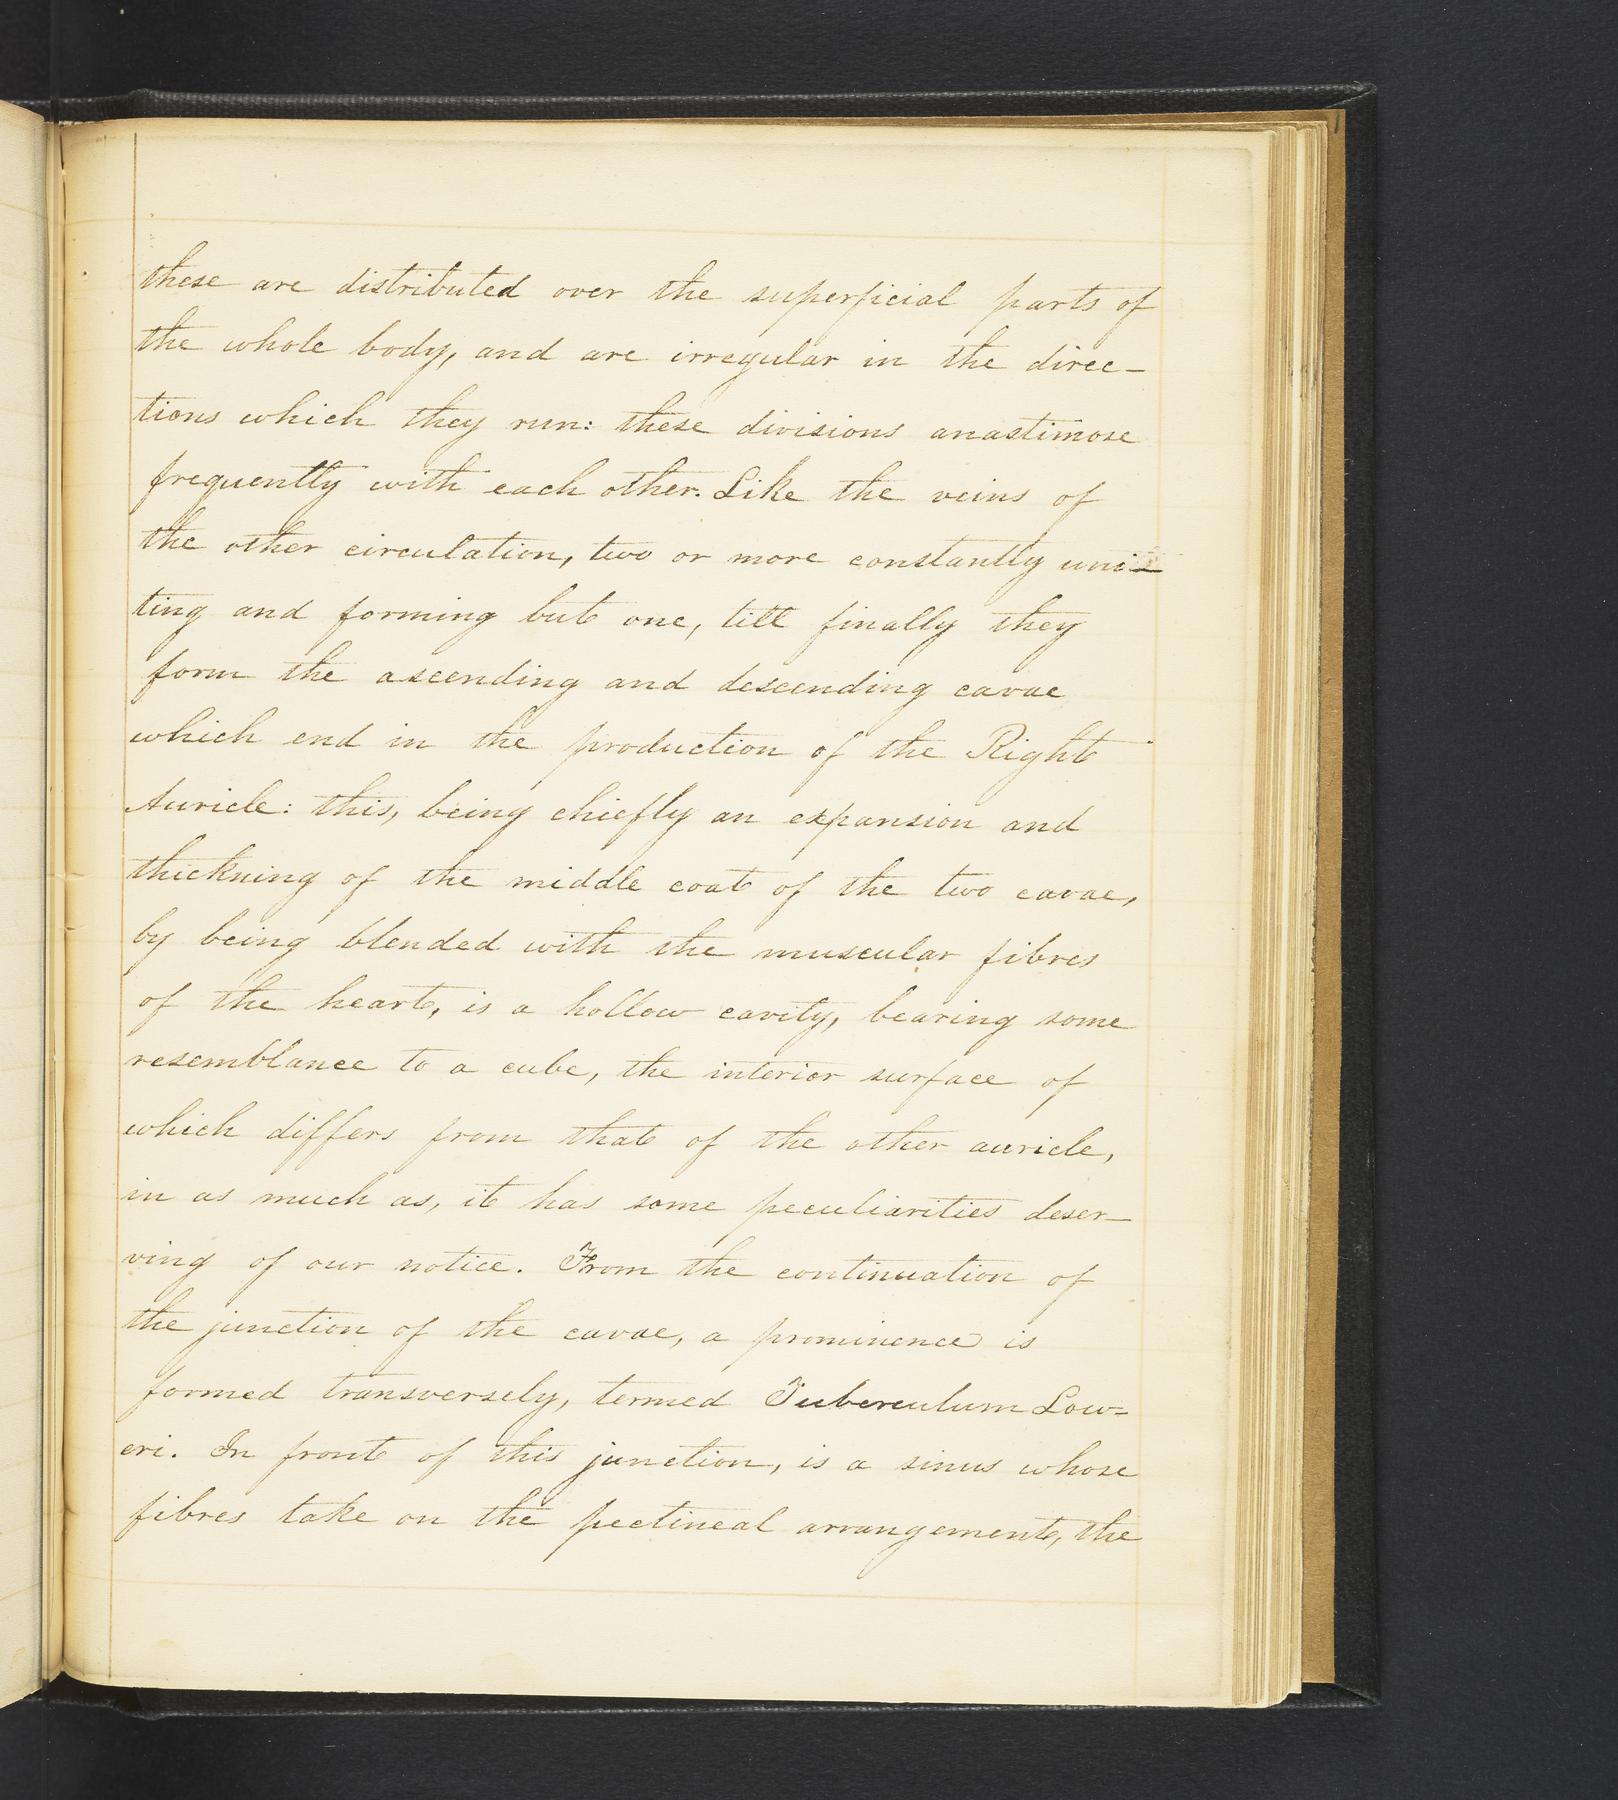 these are distributed over the superficial parts of
the whole body, and are irregular in the direc-
tions which they run: these divisions anastimose
frequently with each other. Like the veins of
the other circulation, two or more constantly uni-
ting and forming but one, till finally they
form the ascending and descending cavae
which end in the production of the Right
Auricle: this, being chiefly an expansion and
thickning of the middle coat of the two cavae,
by being blended with the muscular fibres
of the heart, is a hollow cavity, bearing some
resemblance to a cube, the interior surface of
which differs from that of the other auricle,
in as much as, it has some peculiarities deser-
ving of our notice. From the continuation of
the junction of the cavae, a prominence is
formed transversely, termed Tuberculum Low=
eri. In front of this junction, is a sinus whose
fibres take on the pectineal arrangement, the